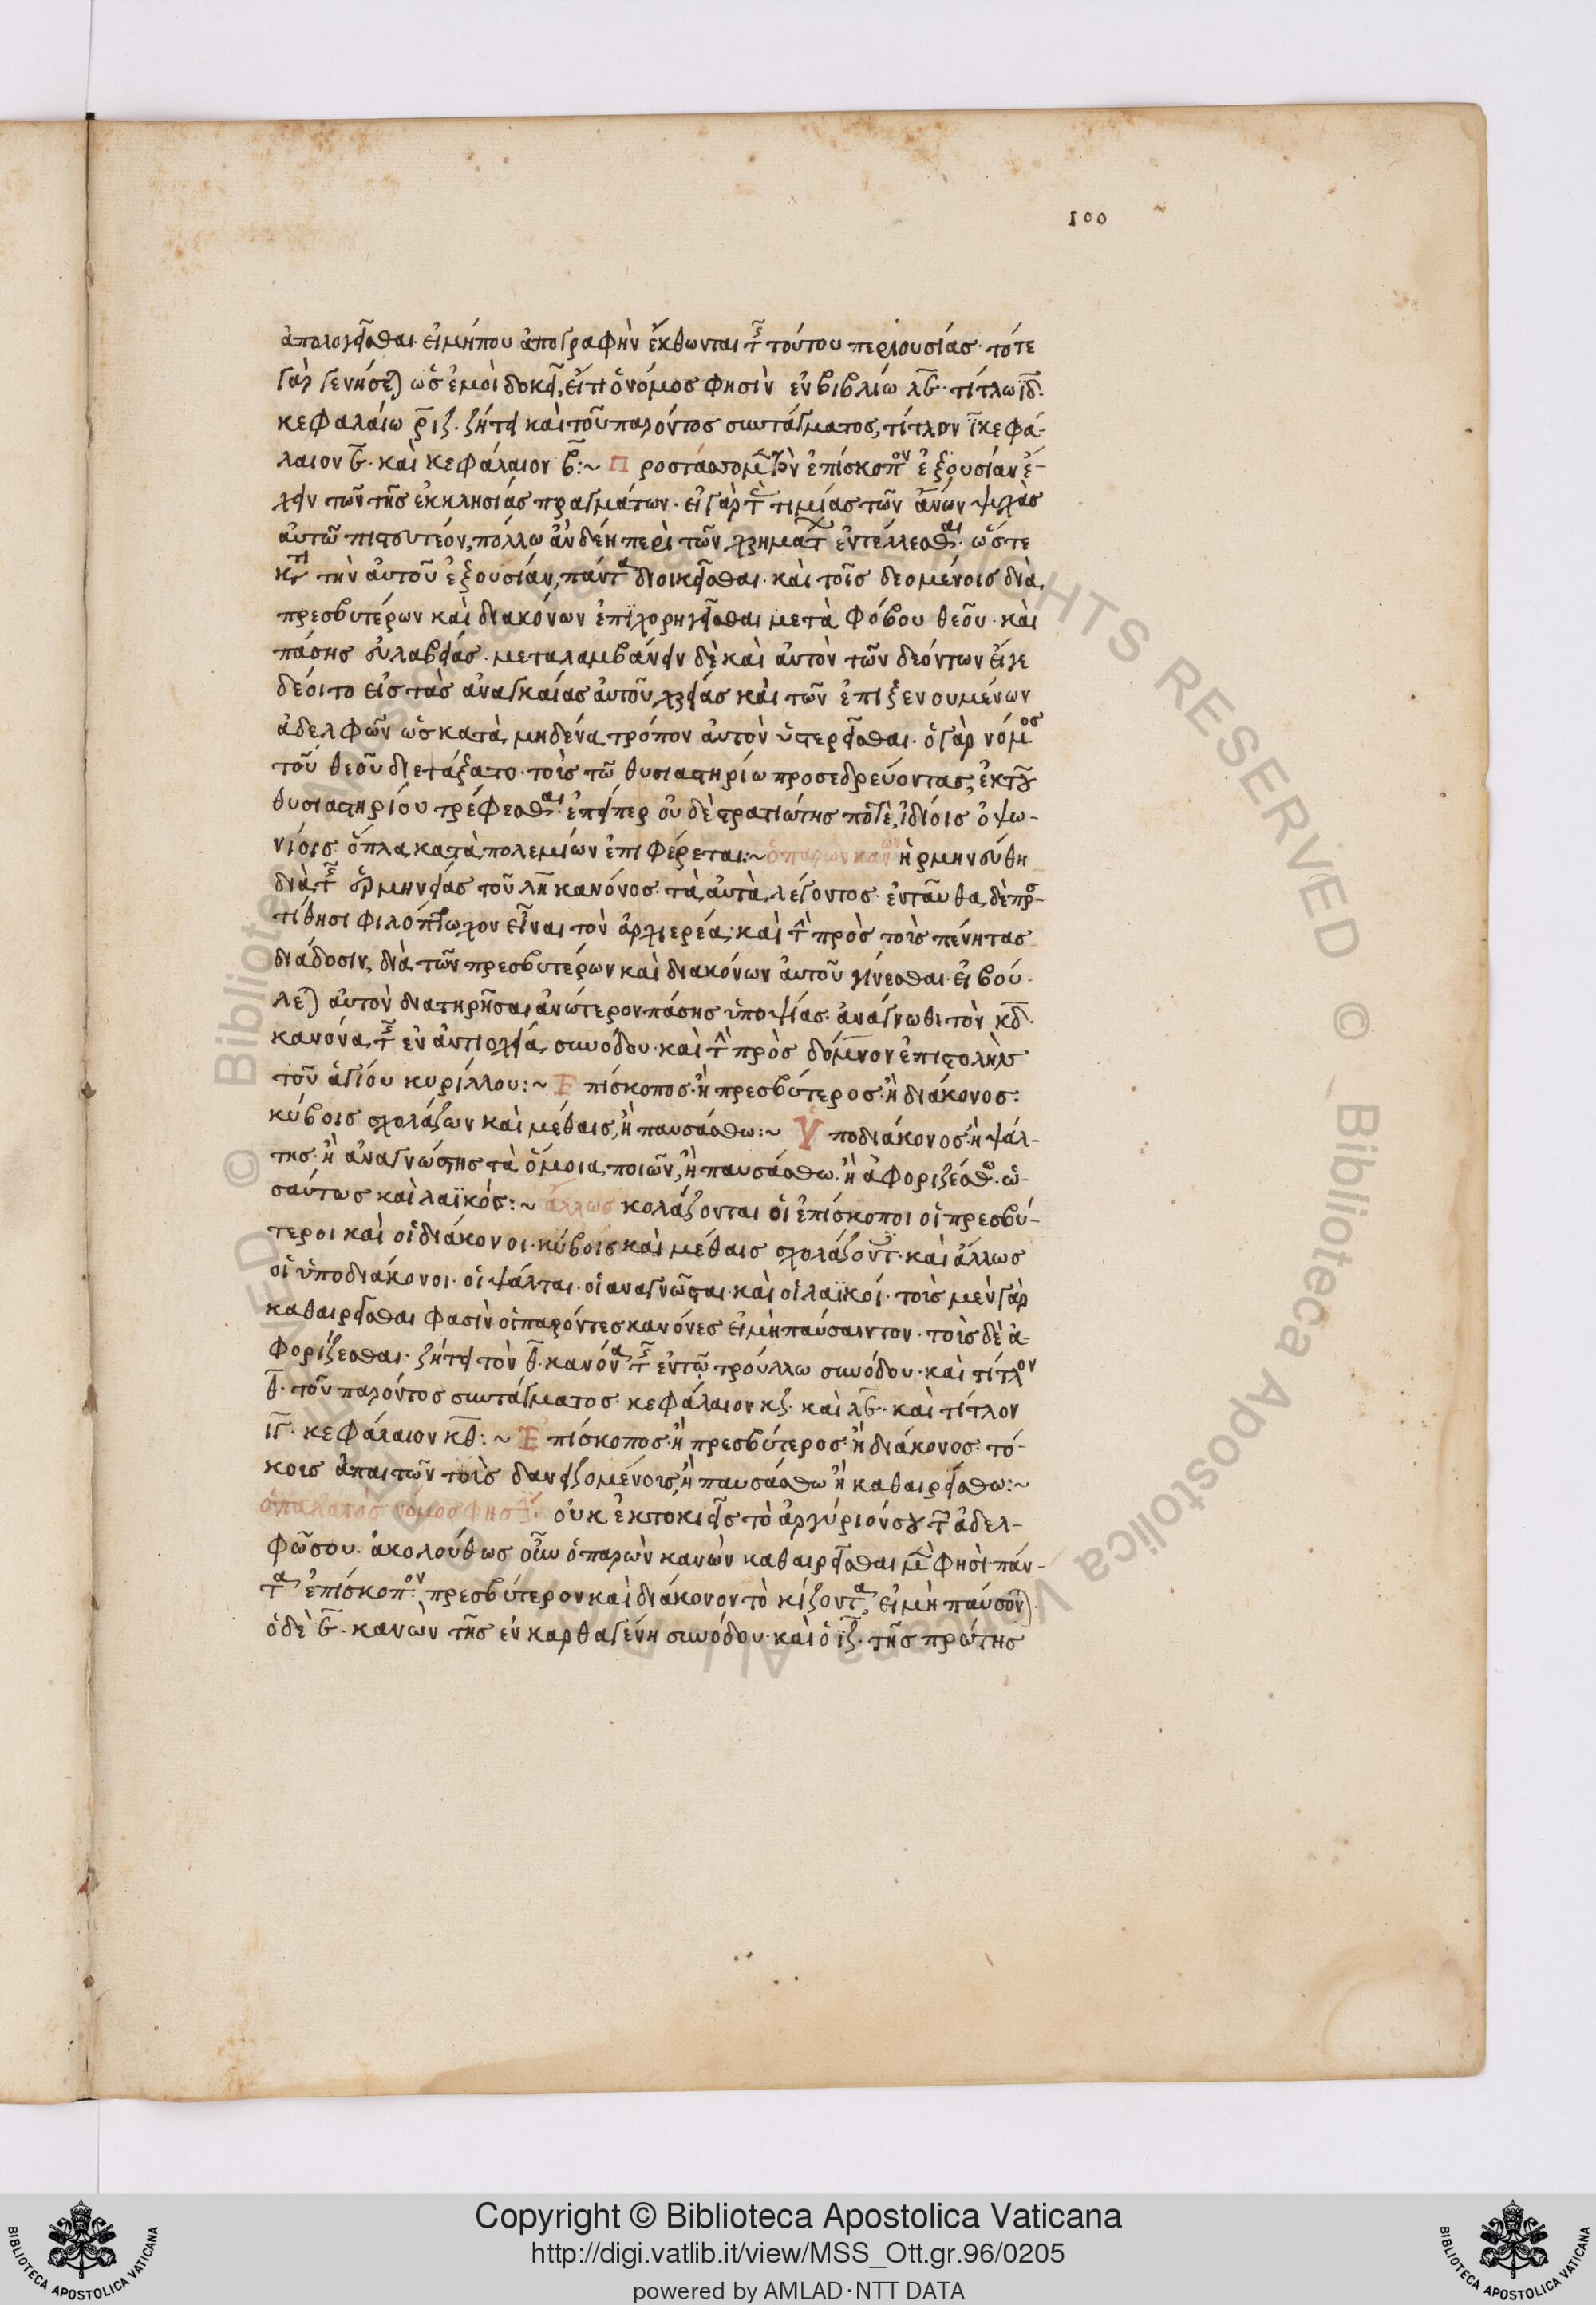 100
ἀπολογεῖσθαι· εἰ μήπου ἀπογραφὴν ἔκθωνται τῆς τούτου περιουσίας· τότε
γὰρ γενήσεται ὡς ἐμοὶ δοκεῖ, εἴ τι ὁ νόμος φησὶν ἐν βιβλίω λϛ· τίτλω ιδ·
κεφαλαίω ριζ· ζήτει καὶ τοῦ παρόντος συντάγματος, τίτλον ι κεφά-
λαιον ϛ· καὶ κεφάλαιον β:~ Προστάσσομεν τὸν ἐπίσκοπον ἐξουσίαν ἔ-
χειν τῶν τῆς ἐκκλησίας πραγμάτων· εἰ γὰρ τὰς τιμίας τῶν ἀνων ψυχὰς
αὐτῶ πιστευτέον, πόλλω ἂν δέη περὶ τῶν χρημάτων ἐντέλλεσθαι· ὥστε
κατὰ τὴν αὐτοῦ ἐξουσίαν, πάντα διοικεῖσθαι· καὶ τοῖς δεομένοις διὰ
πρεσβυτέρων καὶ διακόνων ἐπιχορηγεῖσθαι μετὰ φόβου θεοῦ· καὶ
πάσης εὐλαβείας· μεταλαμβάνειν δὲ καὶ αὐτὸν τῶν δεόντων εἴγε
δέοιτο εἰς τὰς ἀναγκαίας αὐτοῦ χρείας καὶ τῶν ἐπιξενουμένων
ἀδελφῶν ὡς κατὰ μηδένα τρόπον αὐτὸν ὑστερεῖσθαι· ὁ γὰρ νόμος
τοῦ θεοῦ διετάξατο· τοὺς τῶ θυσιαστηρίω προσεδρεύοντας, ἐκ τοῦ
θυσιαστηρίου τρέφεσθαι· ἐπείπερ οὐδὲ στρατιώτης ποτὲ, ἰδίοις ὀψω-
νίοις ὅπλα κατὰ πολεμίων ἐπιφέρεται:~ ὁ παρὼν κανὼν ἡρμηνεύθη
διὰ τῆς ἑρμηνείας τοῦ λη κανόνος· τὰ αὐτὰ λέγοντος· ἐνταῦθα δὲ προς-
τίθησι φιλόπτωχον εἶναι τὸν ἀρχιερέα· καὶ τὴν πρὸς τοὺς πένητας
διάδοσιν, διὰ τῶν πρεσβυτέρων καὶ διακόνων αὐτοῦ γίνεσθαι· εἰ βού-
λεται αὐτὸν διατηρῆσαι ἀνώτερον πάσης ὑποψίας· ἀνάγνωθι τὸν κδ·
κανόνα τῆς ἐν ἀντιοχεία συνόδου· καὶ τὴν πρὸς δόμνον ἐπιστολὴν
τοῦ ἁγίου κυρίλλου:~ Ἐπίσκοπος· ἢ πρεσβύτερος· ἢ διάκονος·
κύβοις σχολάζων καὶ μέθαις, ἢ παυσάσθω:~ Ὑποδιάκονος· ἢ ψάλ-
της· ἢ ἀναγνώστης τὰ ὅμοια ποιῶν, ἢ παυσάσθω· ἢ ἀφοριζέσθω· ὡ-
σαύτως καὶ λαϊκός:~ ἄλλως κολάζονται οἱ ἐπίσκοποι οἱ πρεσβύ-
τεροι καὶ οἱ διάκονοι· κύβοις καὶ μέθαις σχολάζοντες· καὶ ἄλλως
οἱ ὑποδιάκονοι· οἱ ψάλται· οἱ αναγνῶσται· καὶ οἱ λαϊκοί· τοὺς μὲν γὰρ
καθαιρεῖσθαι φασὶν οἱ παρόντες κανόνες εἰ μὴ παύσαιντον· τοὺς δὲ ἀ-
φορίζεσθαι· ζήτει τὸν θ· κανόνα τῆς ἐν τῶ τρούλλω συνόδου· καὶ τίτλον
θ· τοῦ παρόντος συντάγματος· κεφάλαιον κζ· καὶ λϛ· καὶ τίτλον
ιγ· κεφάλαιον κθ:~ Ἐπίσκοπος· ἢ πρεσβύτερος· ἢ διάκονος· τό-
κους ἀπαιτῶν τοὺς δανειζομένους, ἢ παυσάσθω ἢ καθαιρείσθω:~
ὁ παλαιὸς νόμος φησὶν· οὐκ ἐκτοκιεῖς τὸ ἀργύριόν σου τῶ ἀδελ-
φῶ σου· ἀκολούθως οὖν ὁ παρὼν κανὼν καθαιρεῖσθαι μὲν φησὶ πάν-
τα ἐπίσκοπον· πρεσβύτερον καὶ διάκονον τοκίζοντα, εἰ μὴ παύσονται·
ὁ δὲ ϛ· κανὼν τῆς ἐν καρθαγένη συνόδου· καὶ ὁ ιζ· τῆς πρώτης
© Biblioteca Apostolica Vaticana ALL RIGHTS RESERVED
Copyright © Biblioteca Apostolica Vaticana
http://digi.vatlib.it/view/MSS_Ott.gr.96/0205
powered by AMLAD·NTT DATA
BIBLIOTECA APOSTOLICA VATICANA
BIBLIOTECA APOSTOLICA VATICANA